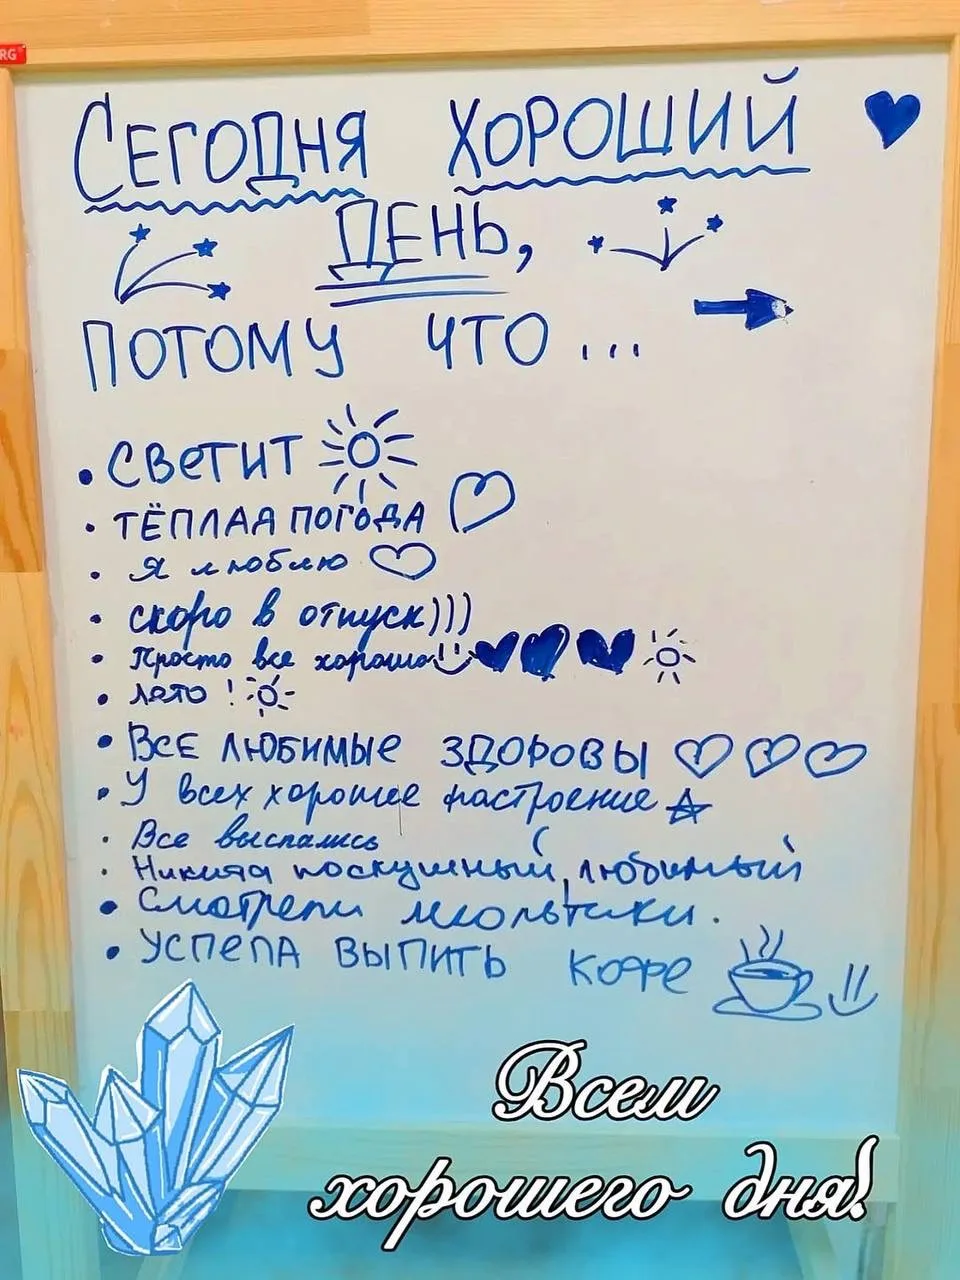 RG
СЕГОДНЯ ХОРОШИЙ
ДЕНЬ,
ПОТОМУ ЧТО ...
• СВЕТИТ
• ТЁПЛАЯ ПОГОДА
• Я люблю
• скоро в отпуск)))
• Просто все хорошо
• лето !
• ВСЕ ЛЮБИМЫЕ ЗДОРОВЫ
• У всех хорошее настроение
• Все выспались
• Никита послушный, любимый
• Смотрели мультики.
• УСПЕЛА ВЫПИТЬ КОФЕ
Всем
хорошего дня!